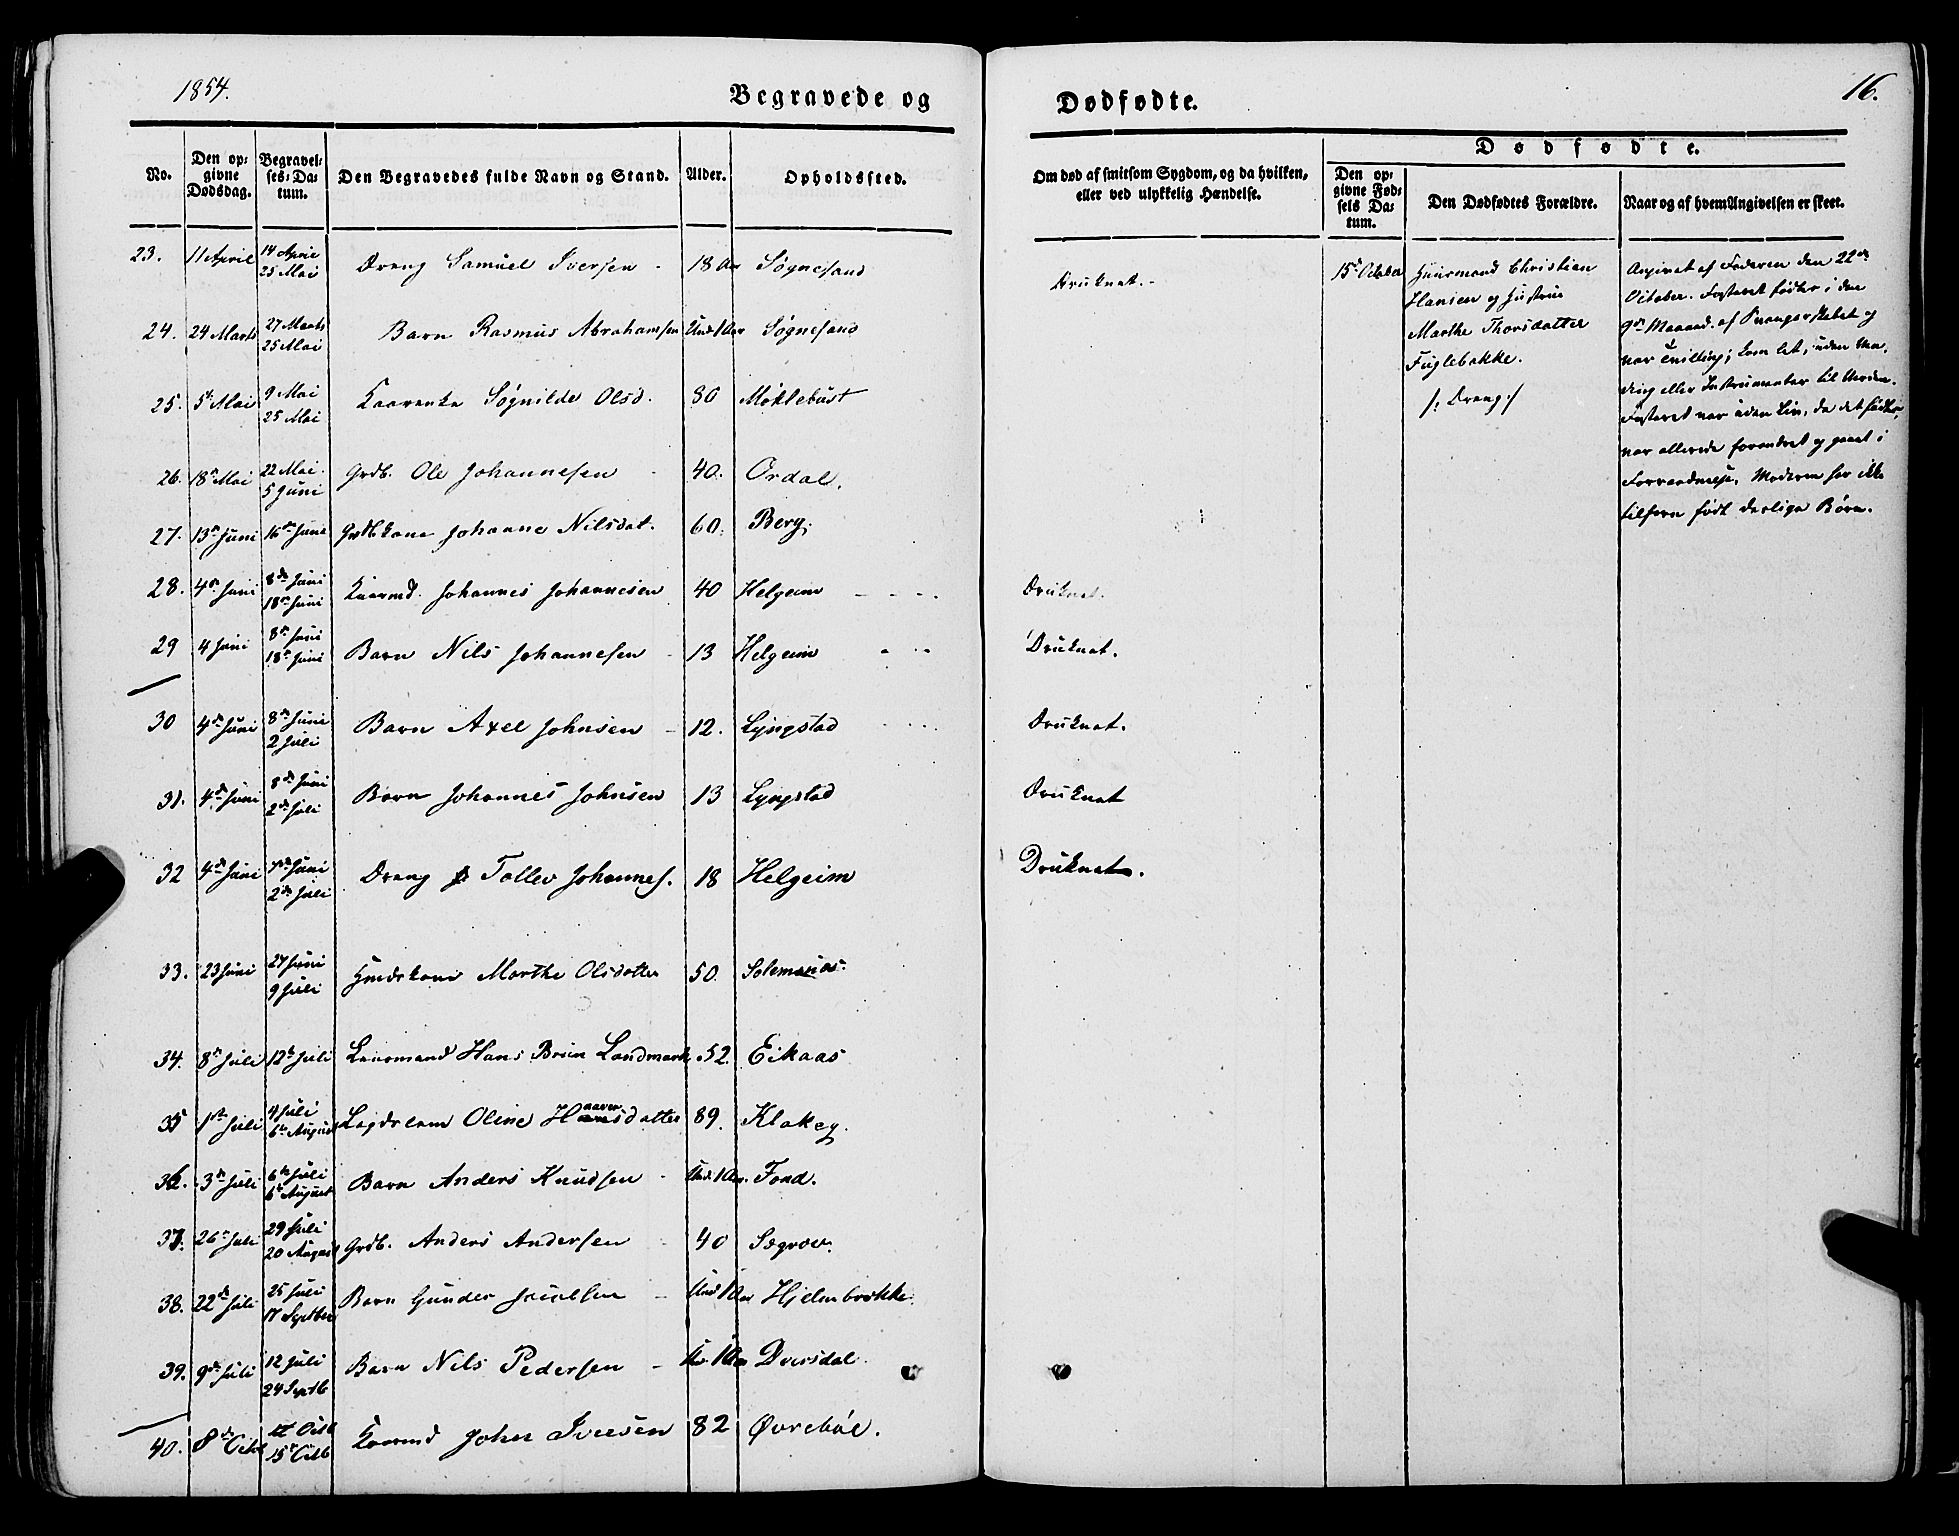 1854.
Begravede og
Dødfødte.
16.
No.
Den op-
givne
Dødsdag.
Begravel-
ses-Da-
tum.
Den Begravedes fulde Navn og Stand.
Alder.
Opholdssted.
Om død af smitsom Sygdom, og da hvilken,
eller ved ulykkelig Hændelse.
Dødfødte.
Den op-
givne Fød-
sels Da-
tum.
Den Dødfødtes Forældre.
Naar og af hvem Angivelsen er skeet.
23. 11 April 14 April 25 Mai Dreng Samuel Iversen 18 Aar Søgnesand Druknet.
24. 24 Marts 27 Marts 25 Mai Barn Rasmus Abrahamsen Und. 1 Aar Søgnesand
25. 5te Mai 9 Mai 25 Mai Søgnilde Olsd. 80 Møklebust
26. 18de Mai 22 Mai 5 Juni Grdb. Ole Johannesen 40. Ordal.
27. 13de Juni 16de Juni Johanne Nilsdat. 60. Berg.
28. 4de Juni 8de Juni 18de Juni Kaarmd. Johannes Johannesen 40 Helgeim Druknet.
29 4 Juni 8de Juni 18de Juni Barn Nils Johannesen 13 Helgeim Druknet.
30 4de Juni 8de Juni 2 Juli Barn Axel Johnsen 12. Lyngstad Druknet.
31. 4de Juni 8de Juni 2de Juli Barn Johannes Johnsen 13 Lyngstad Druknet
32 4de Juni 7de Juni 2de Juli Dreng Tollev Johannes. 18 Helgeim Druknet.
33. 23 Juni 27 Juni 9 Juli Marthe Olsdatter 50.
34. 8de Juli 12te Juli Lensmand Hans Brun Landmark 52. Eikaas
35 1ste Juli 4 Juli 6te August Lægdslem Oline Haaversdatter 89. Klakeg.
36. 3de Juli 6te Juli 6te August Barn Anders Knudsen Und. 1 Aar. Fond.
37. 26de Juli 29 Juli 20 August Grdb. Anders Andersen 40 Søgrov.
38. 22de Juli 25 Juli 17 Septber Barn Gunder Jacobsen Und 1 Aar Hjelmbrekke.
39. 9de Juli 12 Juli 24 Septb Barn Nils Pedersen Un. 1 Aar Dvergsdal.
40. 8de Octb 15de Octb Kaarmd Iversen 82 Øvrebøe.
15de October
Huusmand Christian
Hansen og Hustrue
Marthe Thorsdatter
Fuglebakke.
/: Dreng :/
Angivet af Faderen den 22de
October. Fosteret fødtes i den
9de Maaned af Svangerskabet og
var Tvilling; kom let, uden
eller Instrumenter til Verden.
Fosteret var uden Liv, da det fødtes,
var allerede forandret og gaaet i
Forraadnelse. Moderen har ikke
tilforn født deslige Børn.